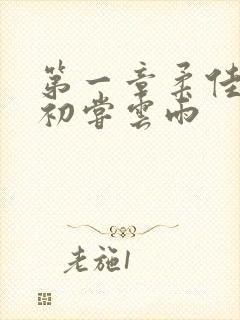 第一章柔佳
初尝雲雨
老施1